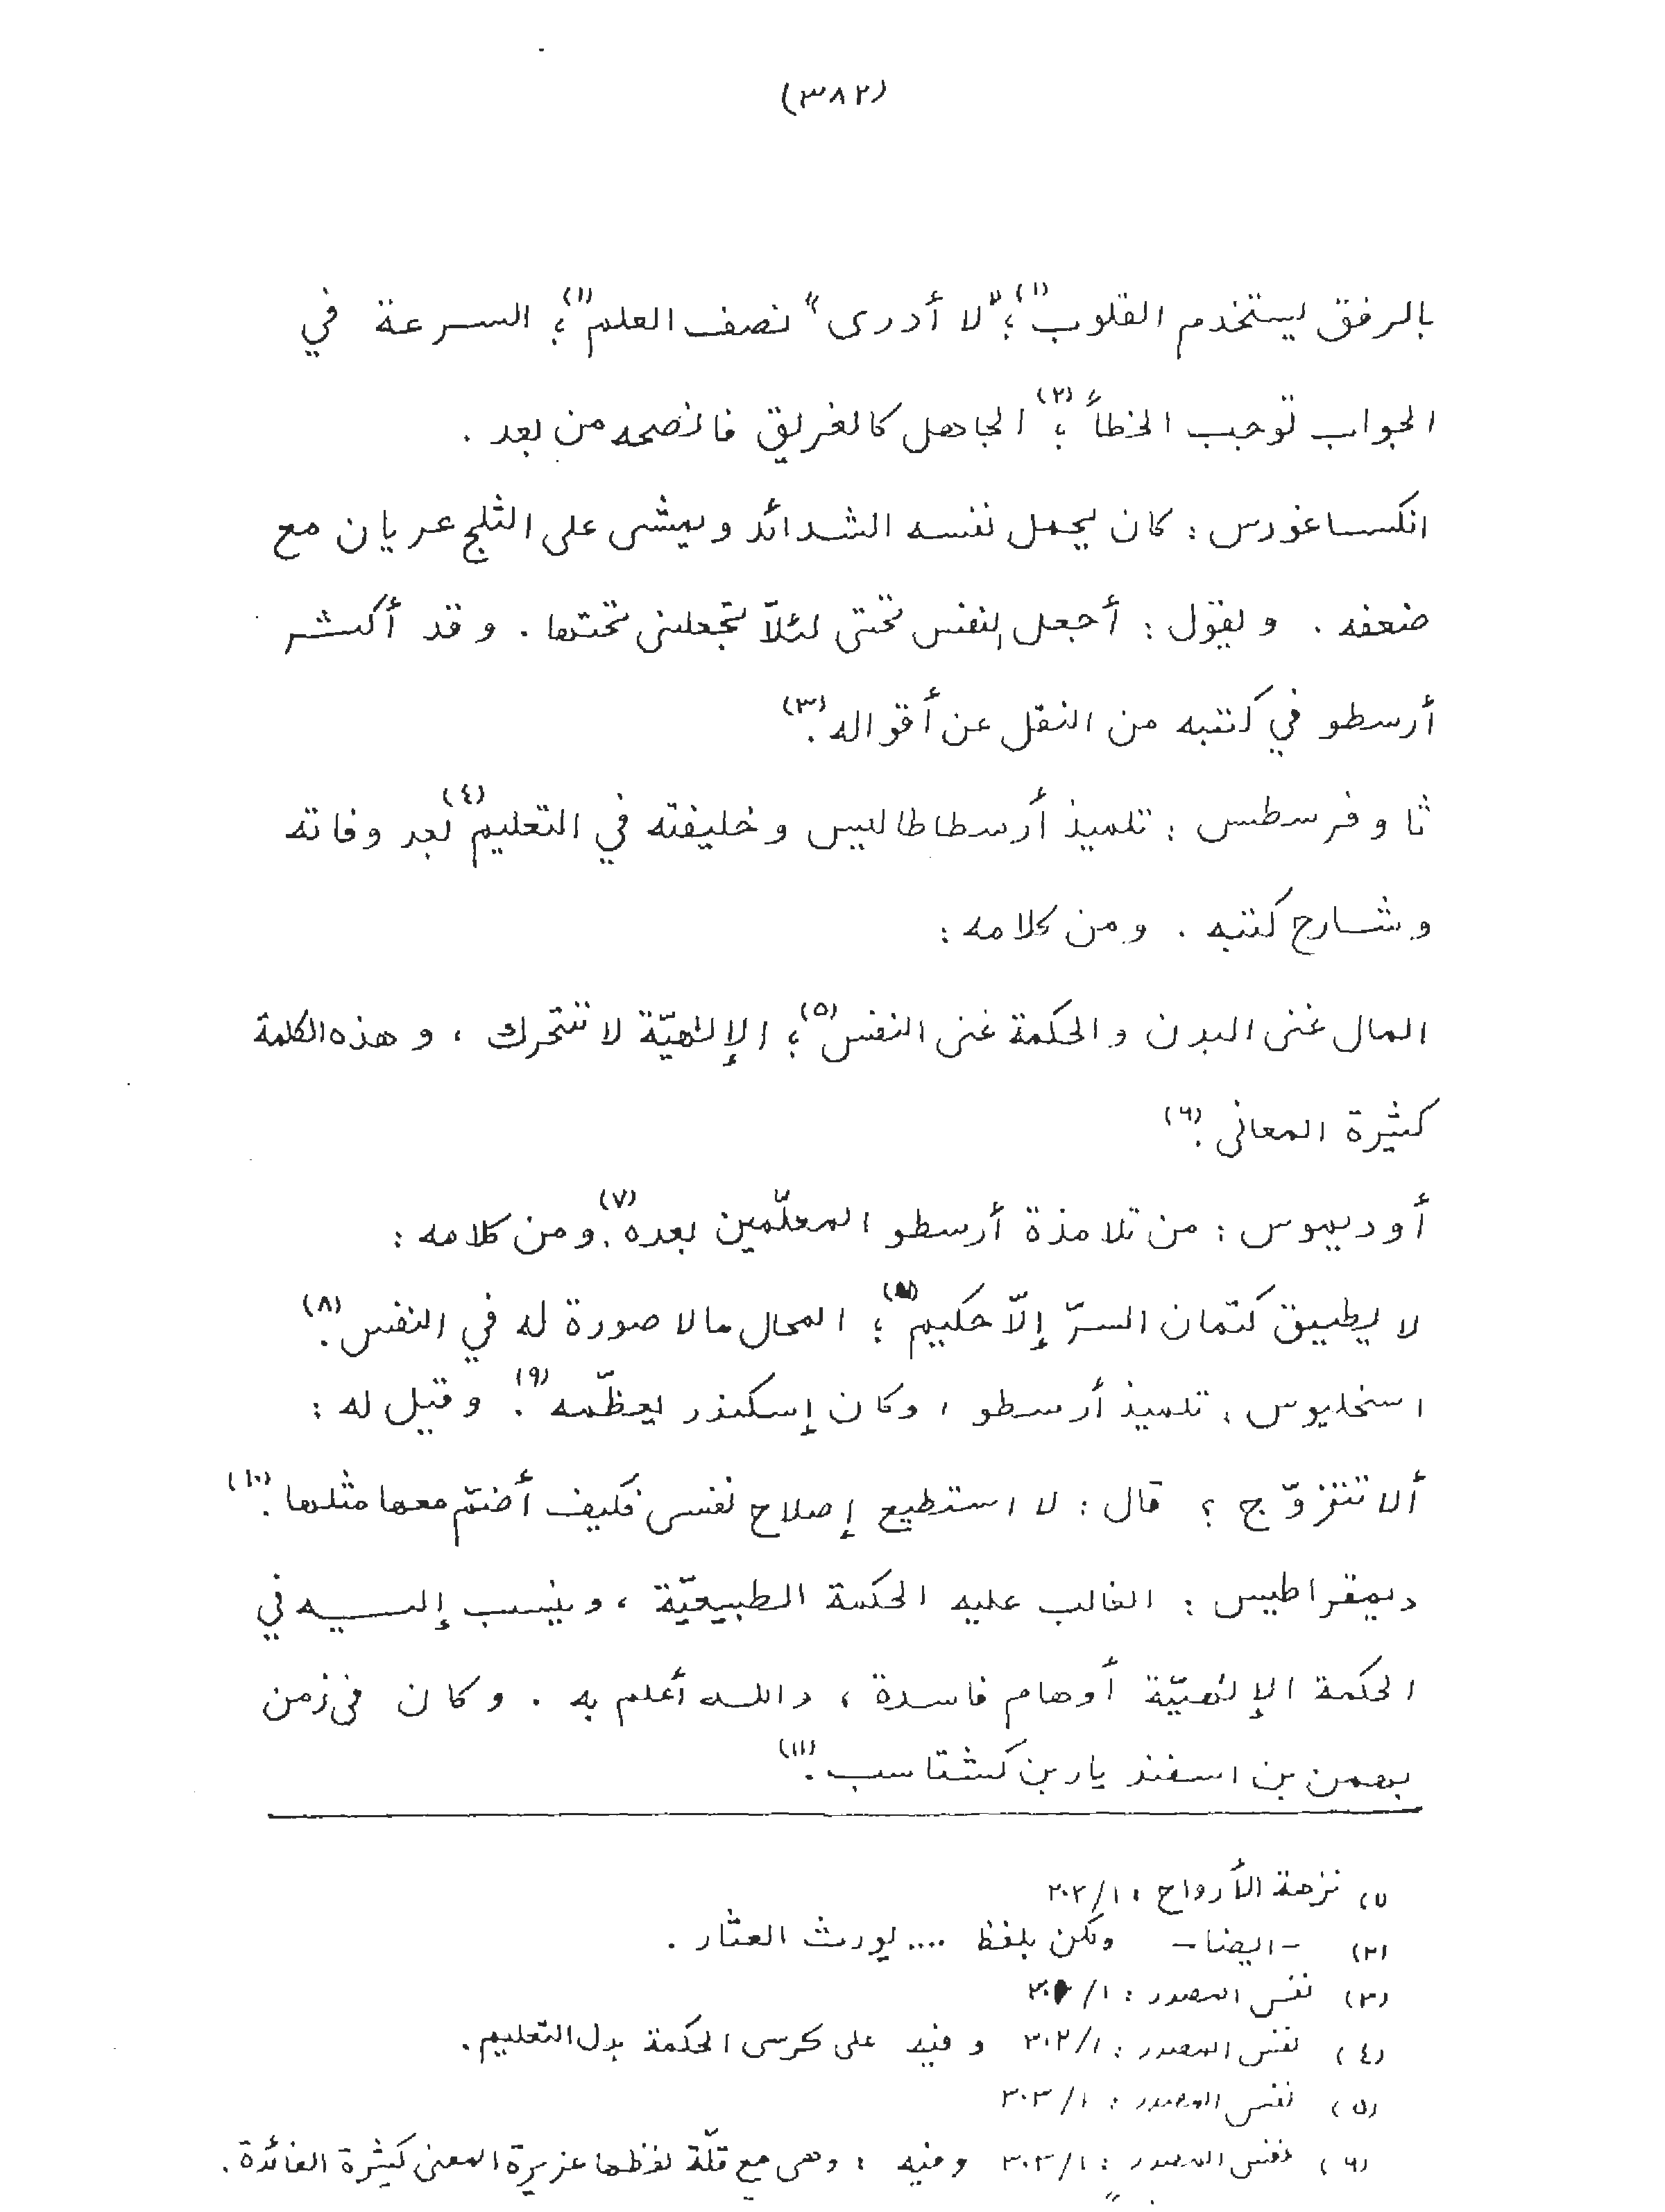 (٣٨٢)
بالرفق ليستخدم القلوب"(١)؛ "لا أدرى" نصف العلم"(١)؛ السرعة في
الجواب توجب الخطأ"(٢)؛ الجاهل كالغريق فانصحه من بعد .
انكساغورس : كان يحمل نفسه الشدائد ويمشى على الثلج عريان مع
ضعفه . ويقول : أجعل النفس تحتى لئلاّ تجعلنى تحتها . وقد أكثر
أرسطو في كتبه من النقل عن أقواله .(٣)
ثاوفرسطس : تلميذ أرسطاطاليس وخليفته في التعليم(٤) بعد وفاته
وشارح كتبه . ومن كلامه :
المال غنى البدن والحكمة غنى النفس(٥)؛ الإلٰهيّة لا تتحرك ، وهذه الكلمة
كثيرة المعانى .(٦)
أوديموس : من تلامذة أرسطو المعلّمين بعده(٧). ومن كلامه :
لا يطيق كتمان السرّ إلاّ حكيم"(٨)؛ المحال مالا صورة له في النفس .(٨)
اسخليوس : تلميذ أرسطو ، وكان إسكندر يعظّمه .(٩) وقيل له :
ألا تتزوّج ؟ قال : لا استطيع إصلاح نفسى فكيف أضمّ معها مثلها .(١٠)
ديمقراطيس : الغالب عليه الحكمة الطبيعيّة ، وينسب إليه في
الحكمة الإلٰهيّة أوهام فاسدة ، والله أعلم به . وكان فى زمن
بهمن بن اسفنديار بن كشتاسب .(١١)
(١) نزهة الأرواح : ٣٠٢/١
(٢) -ايضا- ولكن بلفظ .... يورث العثار .
(٣) نفس المصدر : ٣٠٢/١
(٤) نفس المصدر : ٣٠٢/١ وفيه على كرسى الحكمة بدل التعليم .
(٥) نفس المصدر : ٣٠٣/١
(٦) نفس المصدر : ٣٠٣/١ وفيه : وهى مع قلّة لفظها غزيرة المعنى كثيرة الفائدة .